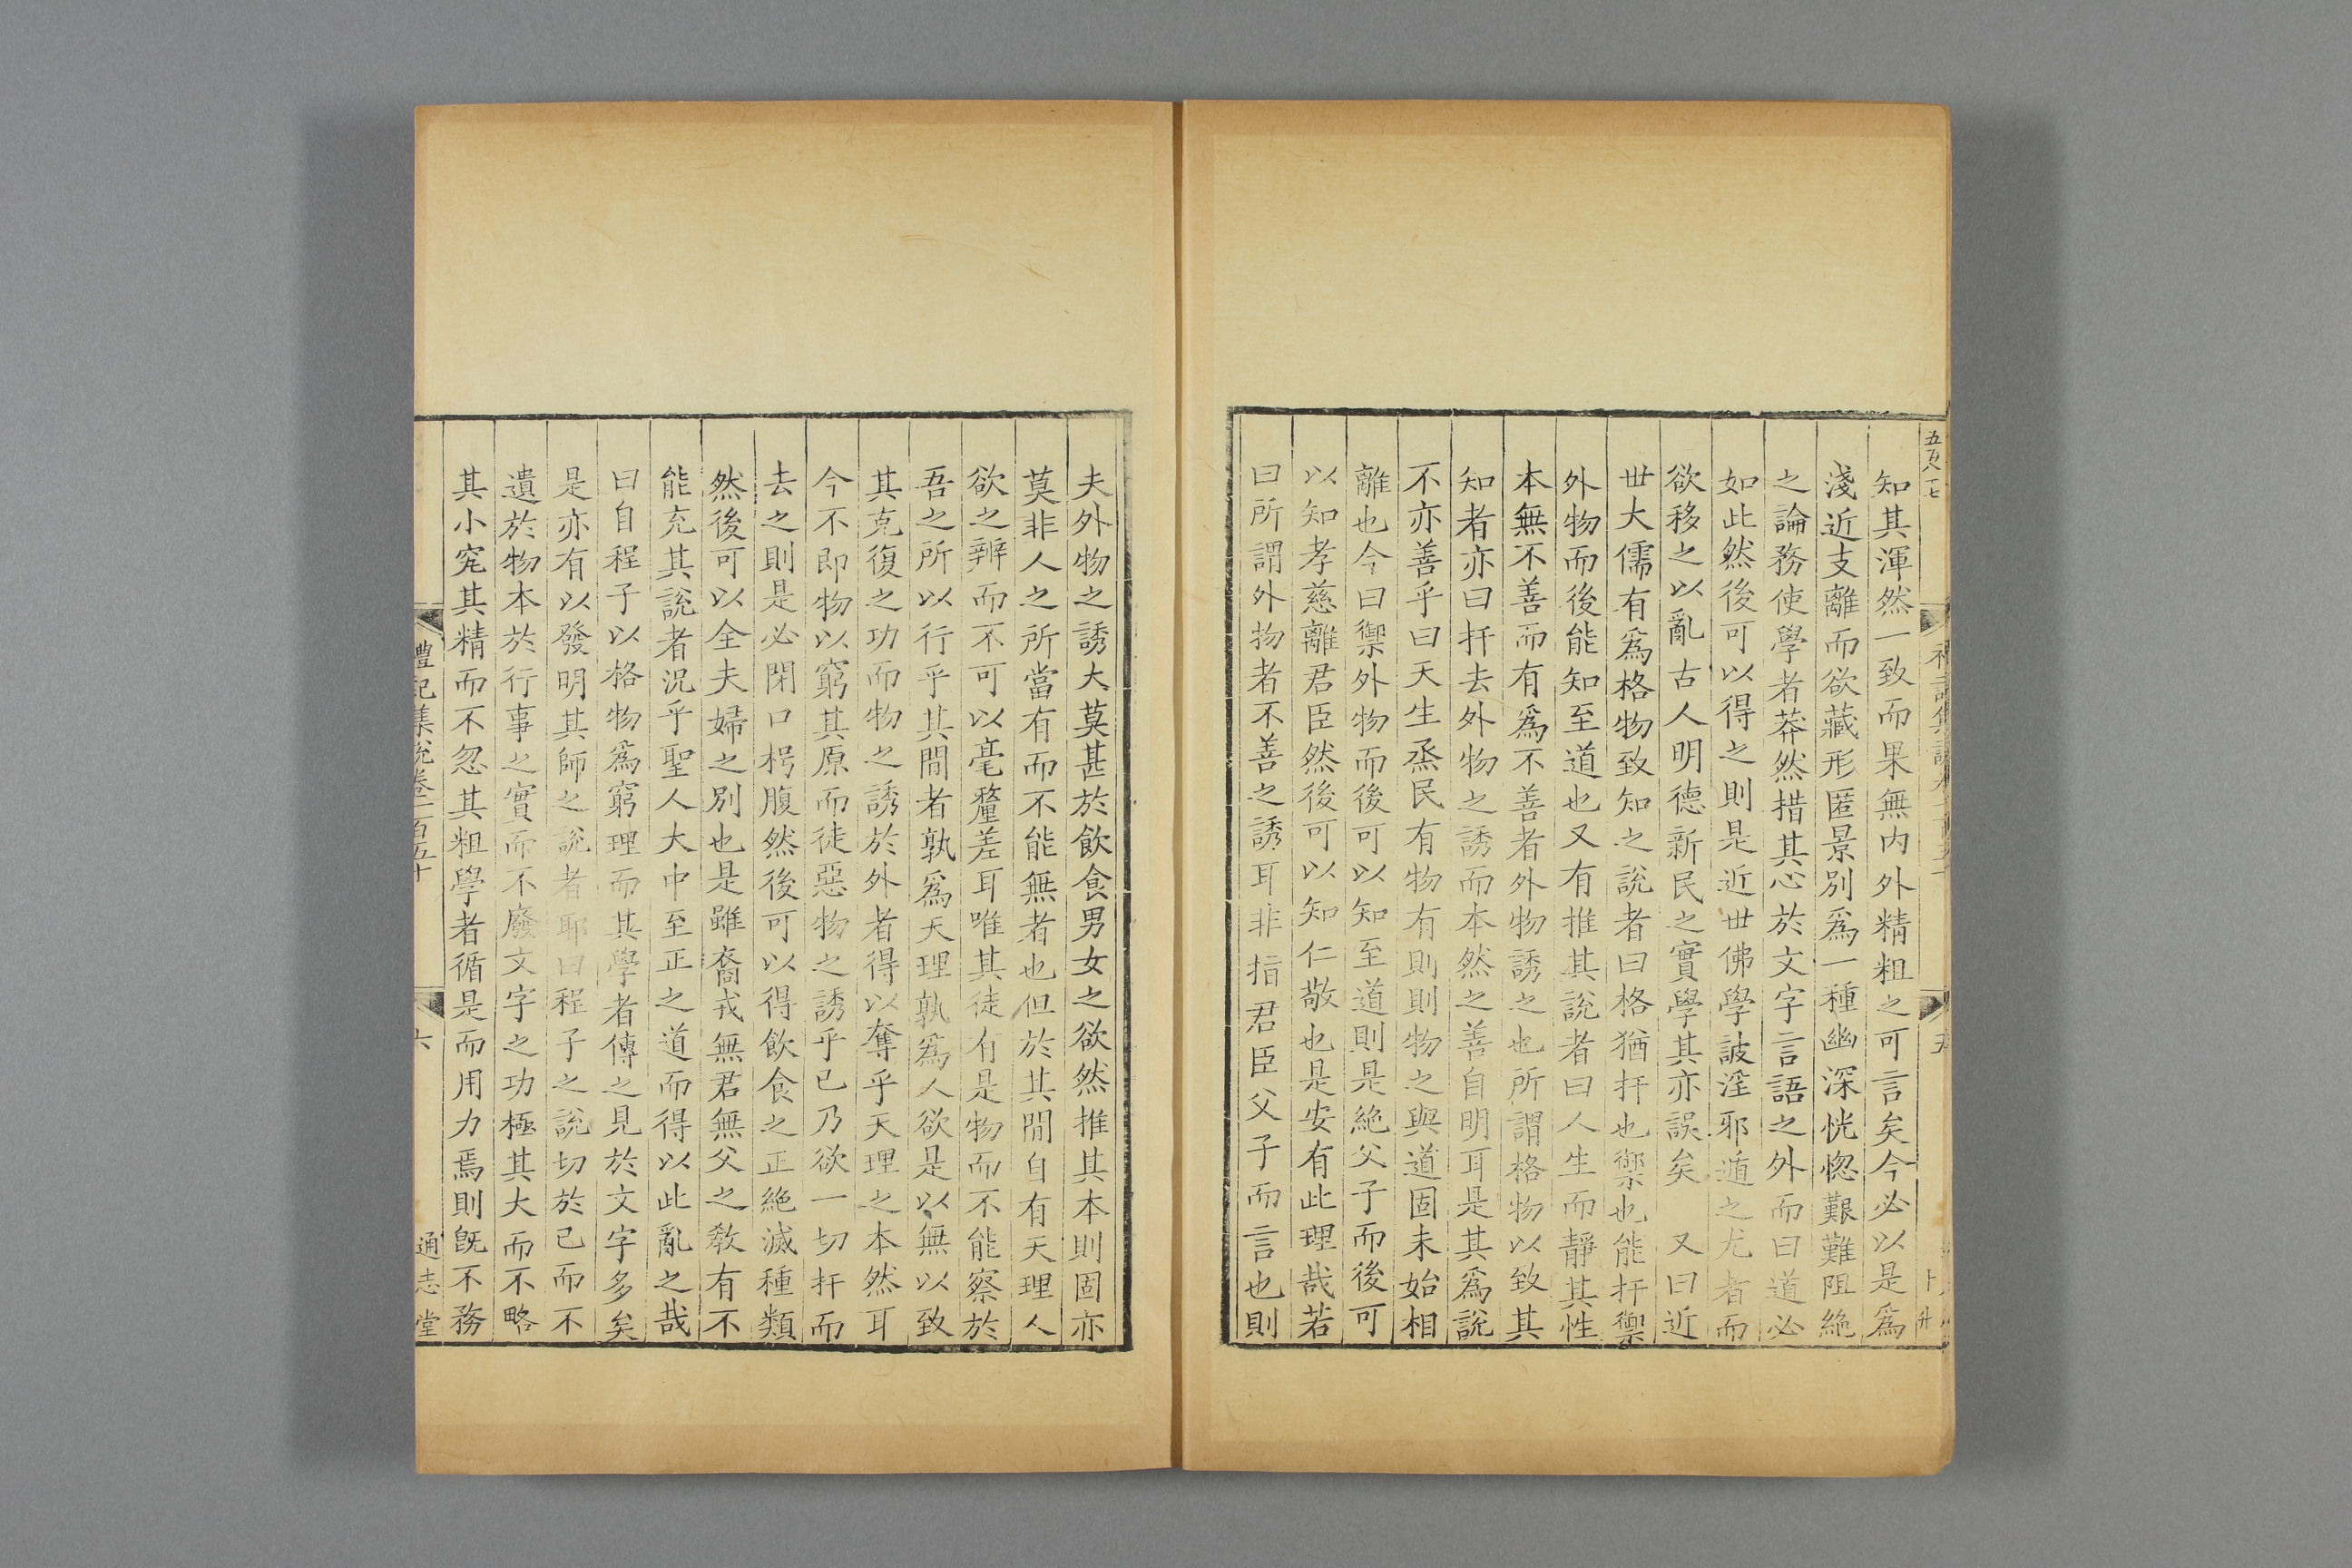 知其渾然一致而果無内外精粗之可言矣今必以是爲
淺近支離而欲藏形匿景別爲一種幽深恍惚艱難阻絶
之論務使學者莽然措其心於文字言語之外而曰道必
如此然後可以得之則是近世佛學詖淫邪遁之尤者而
欲移之以亂古人明德新民之實學其亦誤矣　又曰近
世大儒有爲格物致知之說者曰格猶扞也禦也能扞禦
外物而後能知至道也又有推其說者曰人生而靜其性
本無不善而有爲不善者外物誘之也所謂格物以致其
知者亦曰扞去外物之誘而本然之善自明耳是其爲說
不亦善乎曰天生烝民有物有則則物之與道固未始相
離也今曰禦外物而後可以知至道則是絶父子而後可
以知孝慈離君臣然後可以知仁敬也是安有此理哉若
曰所謂外物者不善之誘耳非指君臣父子而言也則
夫外物之誘大莫甚於飲食男女之欲然推其本則固亦
莫非人之所當有而不能無者也但於其閒自有天理人
欲之辨而不可以毫釐差耳唯其徒有是物而不能察於
吾之所以行乎其閒者孰爲天理孰爲人欲是以無以致
其克復之功而物之誘於外者得以奪乎天理之本然耳
今不即物以窮其原而徒惡物之誘乎已乃欲一切扞而
去之則是必閉口枵腹然後可以得飲食之正絶滅種類
然後可以全夫婦之別也是雖裔戎無君無父之敎有不
能充其說者況乎聖人大中至正之道而得以此亂之哉
曰自程子以格物爲窮理而其學者傳之見於文字多矣
是亦有以發明其師之說者耶曰程子之說切於已而不
遺於物本於行事之實而不廢文字之功極其大而不略
其小究其精而不忽其粗學者循是而用力焉則旣不務
禮記集說卷一百五十
六
通志堂